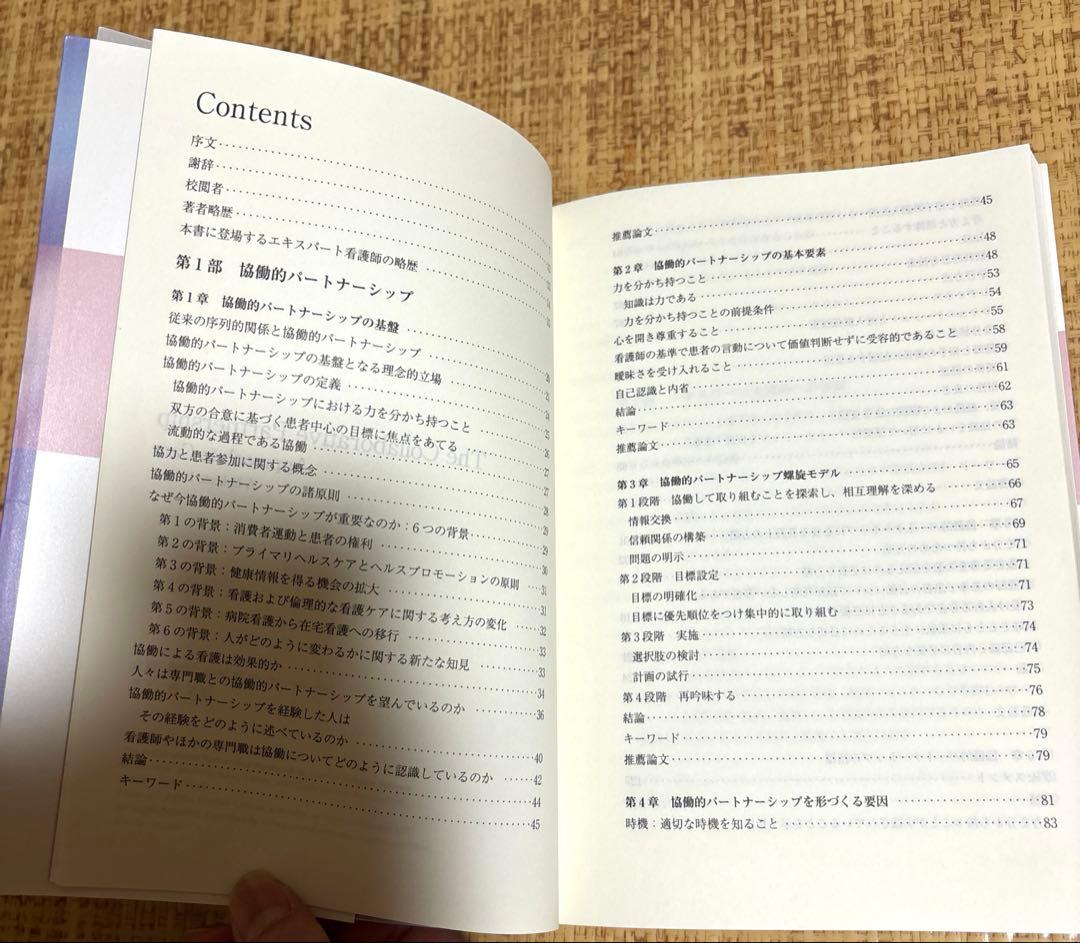 Contents
序文
謝辞
校閲者
著者略歴
本書に登場するエキスパート看護師の略歴
第1部 協働的パートナーシップ
第1章 協働的パートナーシップの基盤
従来の序列的関係と協働的パートナーシップ
協働的パートナーシップの基盤となる理念的立場
協働的パートナーシップの定義
協働的パートナーシップにおける力を分かち持つこと
双方の合意に基づく患者中心の目標に焦点をあてる
流動的な過程である協働
協力と患者参加に関する概念
協働的パートナーシップの諸原則
なぜ今協働的パートナーシップが重要なのか:6つの背景
第1の背景:消費者運動と患者の権利
第2の背景:プライマリヘルスケアとヘルスプロモーションの原則
第3の背景:健康情報を得る機会の拡大
第4の背景:看護および倫理的な看護ケアに関する考え方の変化
第5の背景:病院看護から在宅看護への移行
第6の背景:人がどのように変わるかに関する新たな知見
協働による看護は効果的か
人々は専門職との協働的パートナーシップを望んでいるのか
協働的パートナーシップを経験した人は
その経験をどのように述べているのか ……40
看護師やほかの専門職は協働についてどのように認識しているのか ……42
結論 ……44
キーワード ……45
推薦論文 ……45
第2章 協働的パートナーシップの基本要素 ……48
力を分かち持つこと ……48
知識は力である ……53
力を分かち持つことの前提条件 ……54
心を開き尊重すること ……55
看護師の基準で患者の言動について価値判断せずに受容的であること ……58
曖昧さを受け入れること ……59
自己認識と内省 ……61
結論 ……62
キーワード ……63
推薦論文 ……63
第3章 協働的パートナーシップ螺旋モデル ……65
第1段階 協働して取り組むことを探索し、相互理解を深める ……66
情報交換 ……67
信頼関係の構築 ……69
問題の明示 ……71
第2段階 目標設定 ……71
目標の明確化 ……71
目標に優先順位をつけ集中的に取り組む ……73
第3段階 実施 ……74
選択肢の検討 ……74
計画の試行 ……75
第4段階 再吟味する ……76
結論 ……78
キーワード ……79
推薦論文 ……79
第4章 協働的パートナーシップを形づくる要因 ……81
時機:適切な時機を知ること ……83